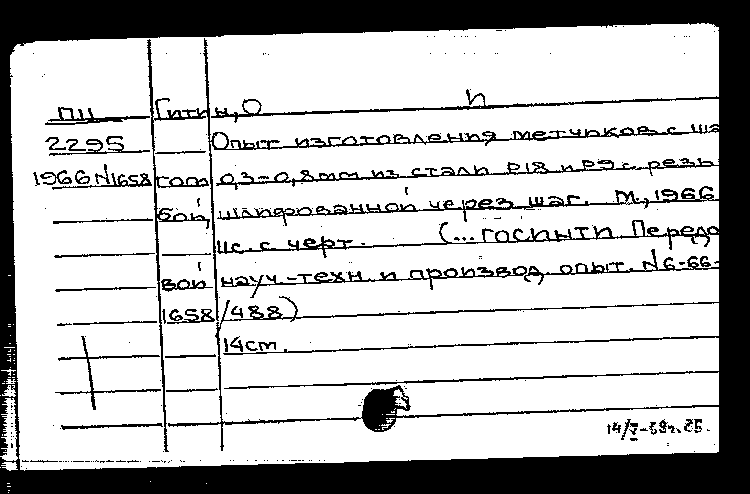 ПН Гитин, О п
2295 Опыт изготовления метчиков с ша
1966 №1658 гом 0,3-0,8мм из стали Р18 и Р9 с резь
бой, шлифованной через шаг. М., 1966
11с. с черт. (...ГОСИНТИ Передо
вой науч.-техн. и производ. опыт. №6-66-
1658/488)
14см.
14/X-68г.